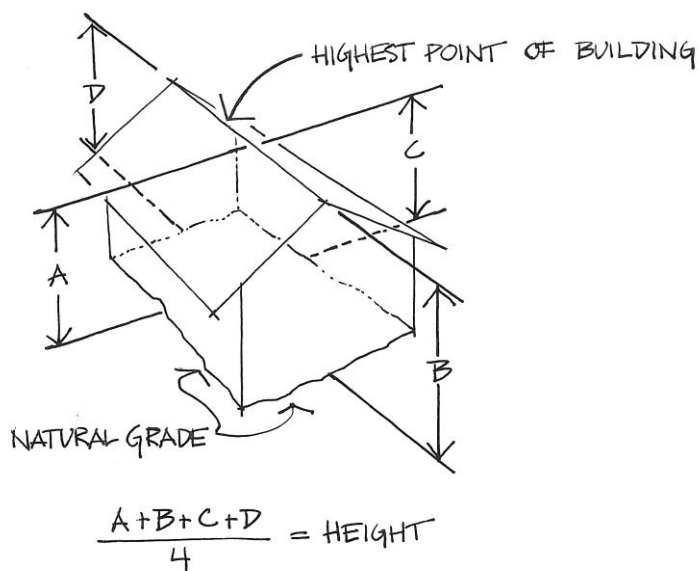 D
HIGHEST POINT OF BUILDING
C
A
B
NATURAL GRADE
A+B+C+D
4
= HEIGHT